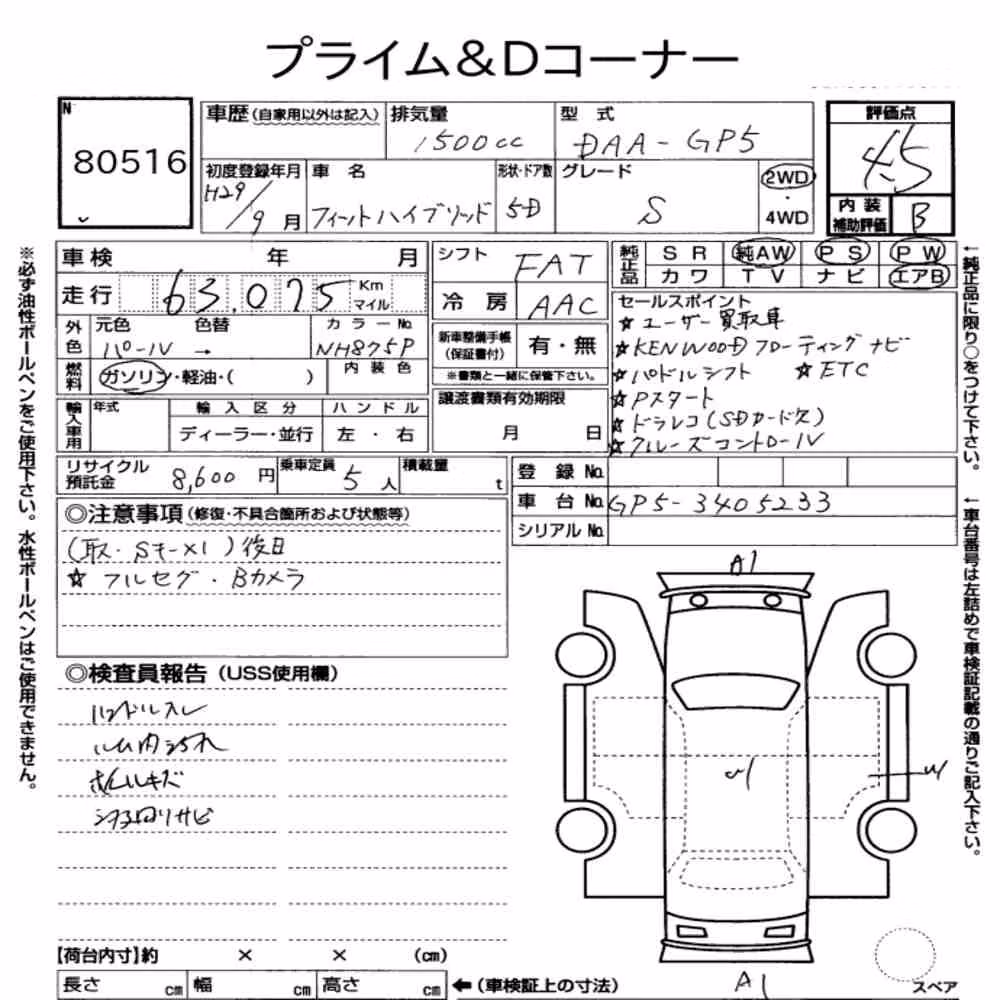 プライム＆Dコーナー
N
80516
車歴（自家用以外は記入） 排気量 1500cc 型式 DAA-GP5
評価点 4.5
初度登録年月 H29/9月 車名 フィットハイブリッド 形状・ドア数 5D グレード S 2WD ・ 4WD
内装補助評価 B
車検 年 月
走行 63,075 Km マイル
シフト FAT
冷房 AAC
純正品 SR 純AW PS PW
カワ TV ナビ エアB
外色 元色 パール → 色替 カラーNo. NH875P
燃料 ガソリン・軽油・（ ） 内装色
新車整備手帳（保証書付） 有・無
※書類と一緒に保管下さい。
セールスポイント
☆ユーザー買取車
☆KENWOODフローティングナビ
☆パドルシフト ☆ETC
☆Pスタート
☆ドラレコ(SDカード欠)
☆クルーズコントロール
輸入車用 年式 輸入区分 ハンドル
ディーラー・並行 左・右
譲渡書類有効期限
月 日
リサイクル預託金 8,600円 乗車定員 5人 積載量 t
登録No.
車台No. GP5-3405233
シリアルNo.
◎注意事項（修復・不具合箇所および状態等）
(取・Sキー×1)後日
☆フルセグ・Bカメラ
◎検査員報告（USS使用欄）
ハンドルスレ
ルーム内汚れ
ホイールキズ
下回りサビ
A1
A1
スペア
【荷台内寸】約 × × （cm）
長さ cm 幅 cm 高さ cm ←（車検証上の寸法）
※必ず油性ボールペンをご使用下さい。水性ボールペンはご使用できません。
←純正品に限り○をつけて下さい。
←車台番号は左詰めで車検証記載の通りご記入下さい。